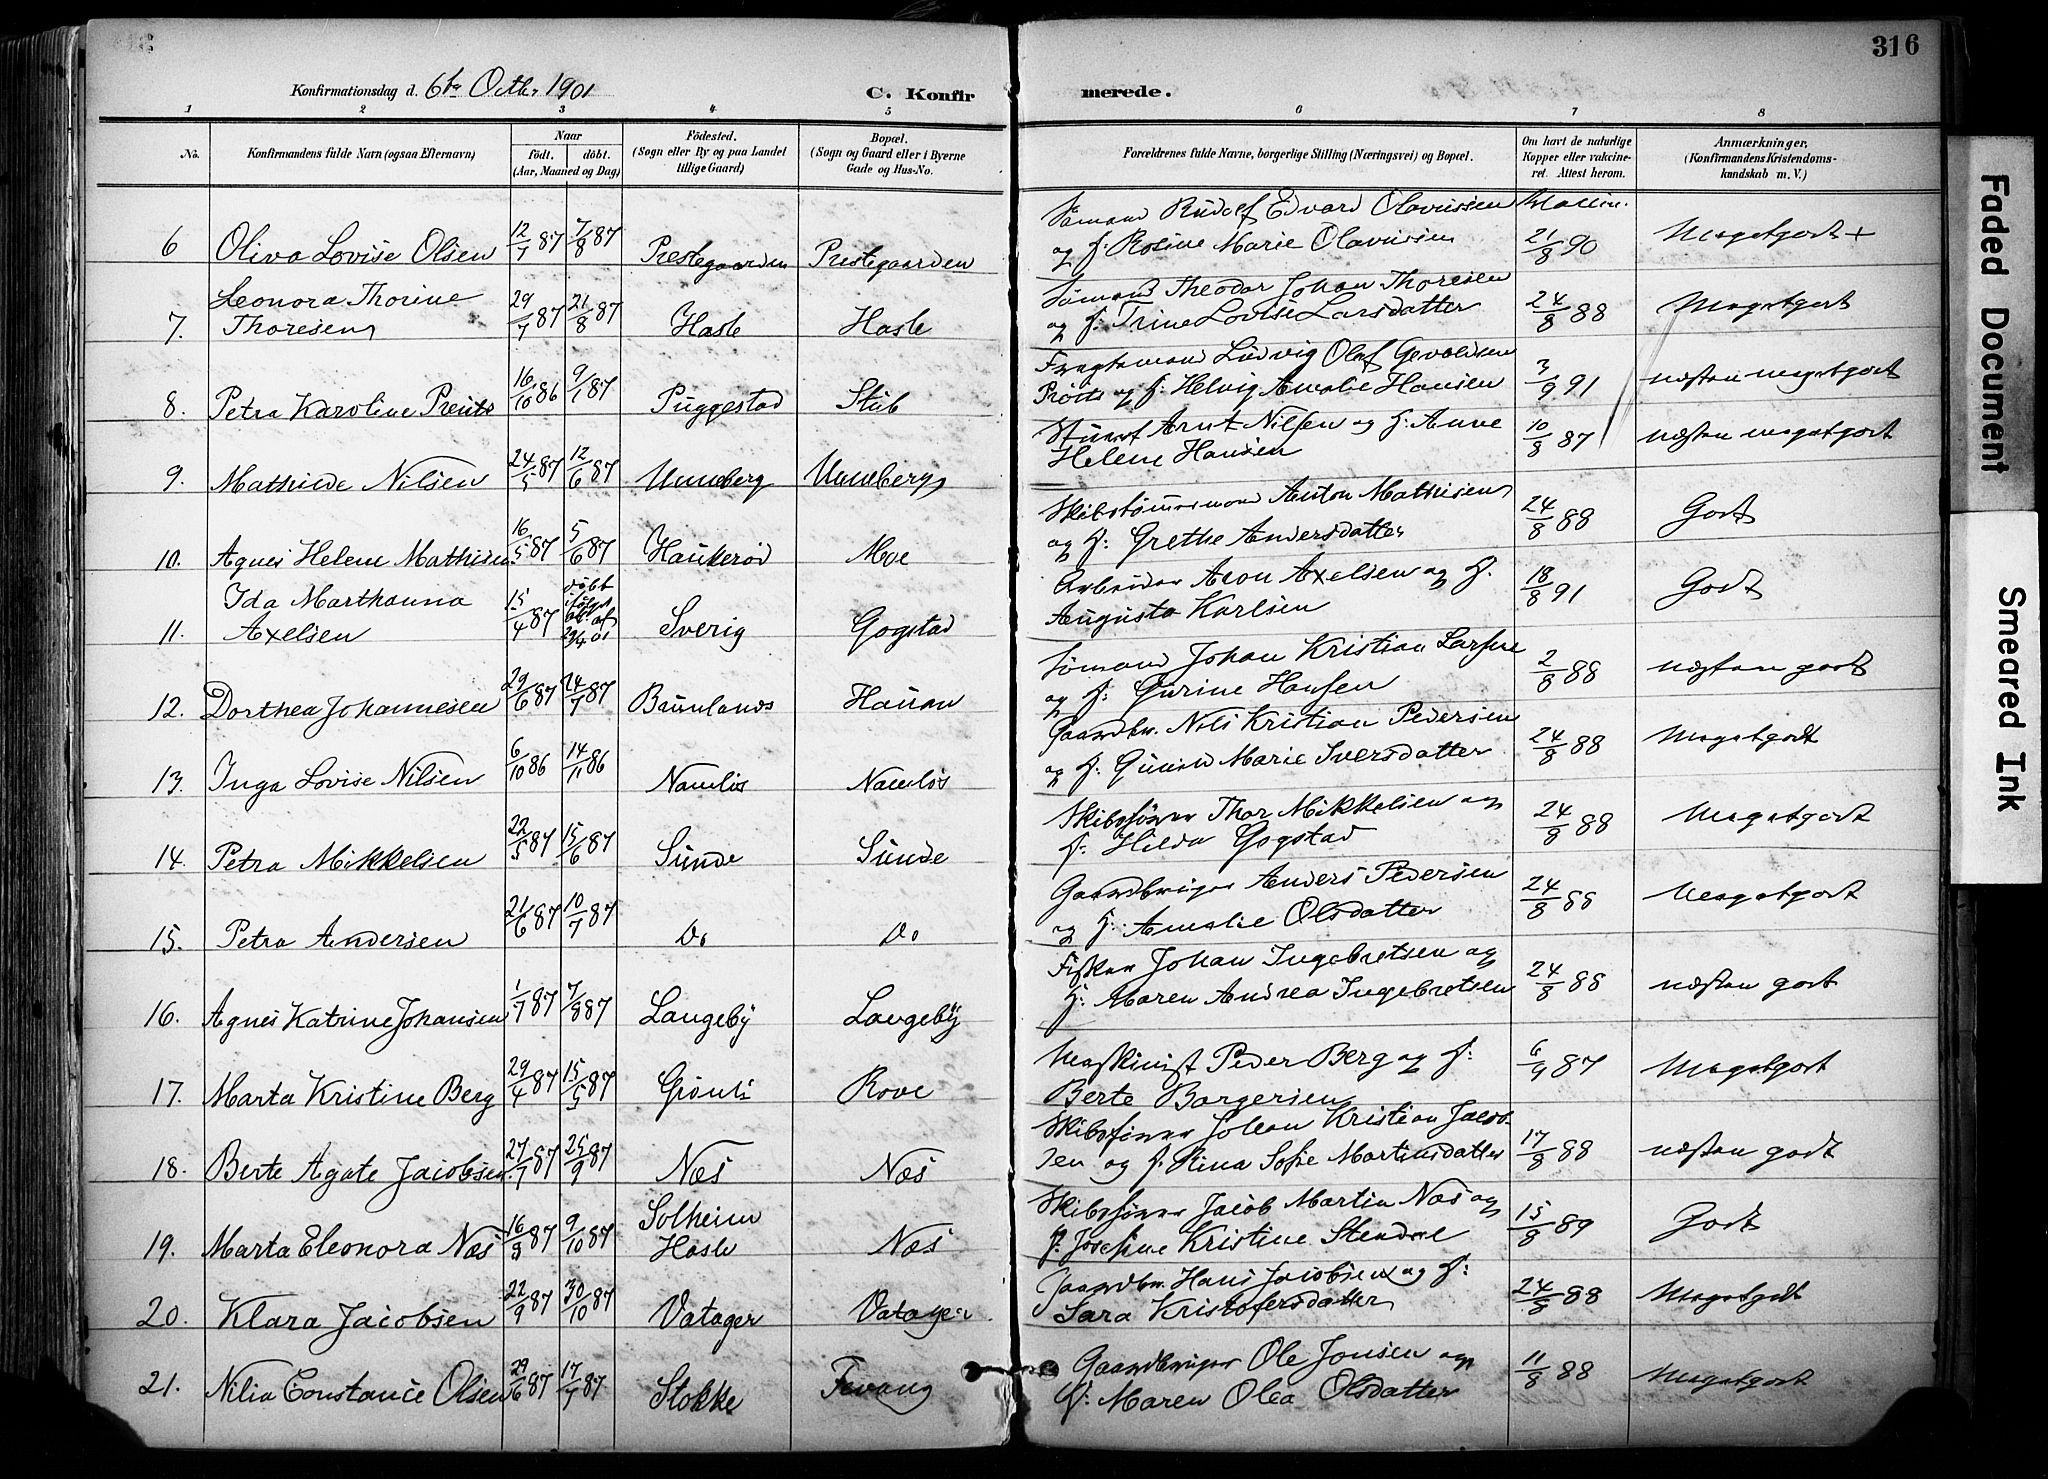 316
Konfirmationsdag d. 6te Octbr 1901 C. Konfirmerede.
1 2 3 4 5 6 7 8
No. Konfirmandens fulde Navn (ogsaa Efternavn) Naar født. døbt. (Aar, Maaned og Dag) Fødested. (Sogn eller By og paa Landet tillige Gaard) Bopæl. (Sogn og Gaard eller i Byerne Gade og Hus-No. Forældrenes fulde Navne, borgerlige Stilling (Næringsvei) og Bopæl. Om havt de naturlige Kopper eller vaccineret. Attest herom. Anmærkninger. (Konfirmandens Kristendomskundskab m. V.)
Sømand Rudolf Edvard Olavussen
6 Oliva Lovise Olsen 12/7 87 7/8 87 Prestegaarden Prestegaarden og h: Rosine Marie Olavussen 21/8 90 Megetgodt +
Leonora Thorine Sømand Theodor Johan Thoresen
7. Thoresen 29/7 87 21/8 87 Hasle Hasle og h: Trine Lovise Larsdatter 24/8 88 Megetgodt
Fragtemand Ludvig Olaf Gevaldsen
8. Petra Karoline Preuts 16/10 86 9/1 87 Puggestad Stub og h: Helvig Amalie Hansen 3/9 91 næsten megetgodt
Stuert Arnt Nilsen og h: Anne
9. Mathilde Nilsen 24/5 87 12/6 87 Unneberg Unneberg Helene Hansen 10/8 87 næsten megetgodt
Skibstømmermand Anton Mathisen
10. Agnes Helene Mathisen 16/5 87 5/6 87 Haukerød Moe og h: Grethe Andersdatter 24/8 88 Godt
Ida Marthanna døbt ifølge att. af 29/4 01 Arbeider Aron Axelsen og h.
11. Axelsen 15/4 87 Sverig Gogstad Augusta Karlsen 18/8 91 Godt
Sømand Johan Kristian Larsen
12. Dorthea Johannesen 29/6 87 24/7 87 Brunlanes Haugan og h: Gurine Hansen 2/8 88 næsten godt
Gaardbr. Nils Kristian Pedersen
13. Inga Lovise Nilsen 6/10 86 14/11 86 Namløs Namløs og h: Gunild Marie Iversdatter 24/8 88 Megetgodt
Skibsfører Thor Mikkelsen og
14. Petra Mikkelsen 22/5 87 15/6 87 Sunde Sunde h: Hilda Gogstad 24/8 88 Megetgodt
Gaardbruger Anders Pedersen
15. Petra Andersen 21/6 87 10/7 87 Do Do og h: Amalie Olsdatter 24/8 88 Megetgodt
Fisker Johan Ingebretsen og
16. Agnes Katrine Johansen 1/7 87 7/8 87 Langeby Langeby h: Maren Andrea Ingebretsen 24/8 88 næsten godt
Maskinist Peder Berg og h:
17. Marta Kristine Berg 29/4 87 15/5 87 Grønli Rove Berte Borgersen 6/9 87 Megetgodt
Skibsfører Johan Kristian Jacob-
18. Berte Agate Jacobsen 27/7 87 25/9 87 Næs Næs sen og h. Rina Sofie Martinsdatter 17/8 88 næsten godt
Solheim Skibsfører Jacob Martin Næs og
19. Marta Eleonora Næs 16/9 87 9/10 87 Hasle Næs h: Josefine Kristine Stendal 15/8 89 Godt
Gaardbr. Hans Jacobsen og h:
20. Klara Jacobsen 22/9 87 30/10 87 Vatager Vatager Sara Kristofersdatter 24/8 88 Megetgodt
Gaardbruger Ole Jonsen og
21. Nilia Constance Olsen 29/6 87 17/7 87 Stokke Fevang h: Maren Olea Olsdatter 11/8 88 Megetgodt
Faded Document
Smeared Ink